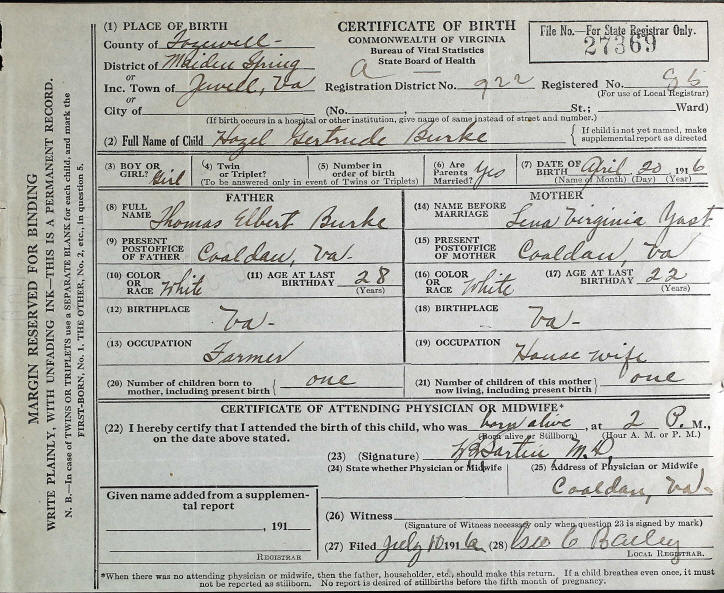 MARGIN RESERVED FOR BINDING
WRITE PLAINLY, WITH UNFADING INK—THIS IS A PERMANENT RECORD.
N. B.—In case of TWINS OR TRIPLETS use a SEPARATE BLANK for each child, and mark the
FIRST-BORN, No. 1, THE OTHER, No. 2, etc., in question 5.
(1) PLACE OF BIRTH
County of Tazewell-
District of Maiden Spring
or
Inc. Town of Jewell, Va
or
City of
CERTIFICATE OF BIRTH
COMMONWEALTH OF VIRGINIA
Bureau of Vital Statistics
State Board of Health
File No.—For State Registrar Only.
27369
a
Registration District No. 922 Registered No.
(For use of Local Registrar)
(No. , St.; Ward)
(If birth occurs in a hospital or other institution, give name of same instead of street and number.)
(2) Full Name of Child Hazel Gertrude Burke { If child is not yet named, make
supplemental report as directed
(3) BOY OR GIRL? Girl
(4) Twin or Triplet?
(5) Number in order of birth
(To be answered only in event of Twins or Triplets)
(6) Are Parents Married? Yes
(7) DATE OF BIRTH April 20 1916
(Name of Month) (Day) (Year)
FATHER
(8) FULL NAME Thomas Elbert Burke
(9) PRESENT POSTOFFICE OF FATHER Coaldan, Va-
(10) COLOR OR RACE White (11) AGE AT LAST BIRTHDAY 28
(Years)
(12) BIRTHPLACE Va-
(13) OCCUPATION Farmer
(20) Number of children born to mother, including present birth { one
MOTHER
(14) NAME BEFORE MARRIAGE Lena Virginia Yost
(15) PRESENT POSTOFFICE OF MOTHER Coaldan, Va
(16) COLOR OR RACE White (17) AGE AT LAST BIRTHDAY 22
(Years)
(18) BIRTHPLACE Va-
(19) OCCUPATION House wife
(21) Number of children of this mother now living, including present birth { one
CERTIFICATE OF ATTENDING PHYSICIAN OR MIDWIFE*
(22) I hereby certify that I attended the birth of this child, who was born alive, at 2 P. M.,
on the date above stated. (Born alive or Stillborn) (Hour A. M. or P. M.)
(23) (Signature) M.D.
(24) State whether Physician or Midwife (25) Address of Physician or Midwife
Coaldan, Va-
Given name added from a supplemental report
, 191
REGISTRAR
(26) Witness
(Signature of Witness necessary only when question 23 is signed by mark)
(27) Filed July 10 1916 (28) Geo C Bailey
LOCAL REGISTRAR.
*When there was no attending physician or midwife, then the father, householder, etc., should make this return. If a child breathes even once, it must
not be reported as stillborn. No report is desired of stillbirths before the fifth month of pregnancy.